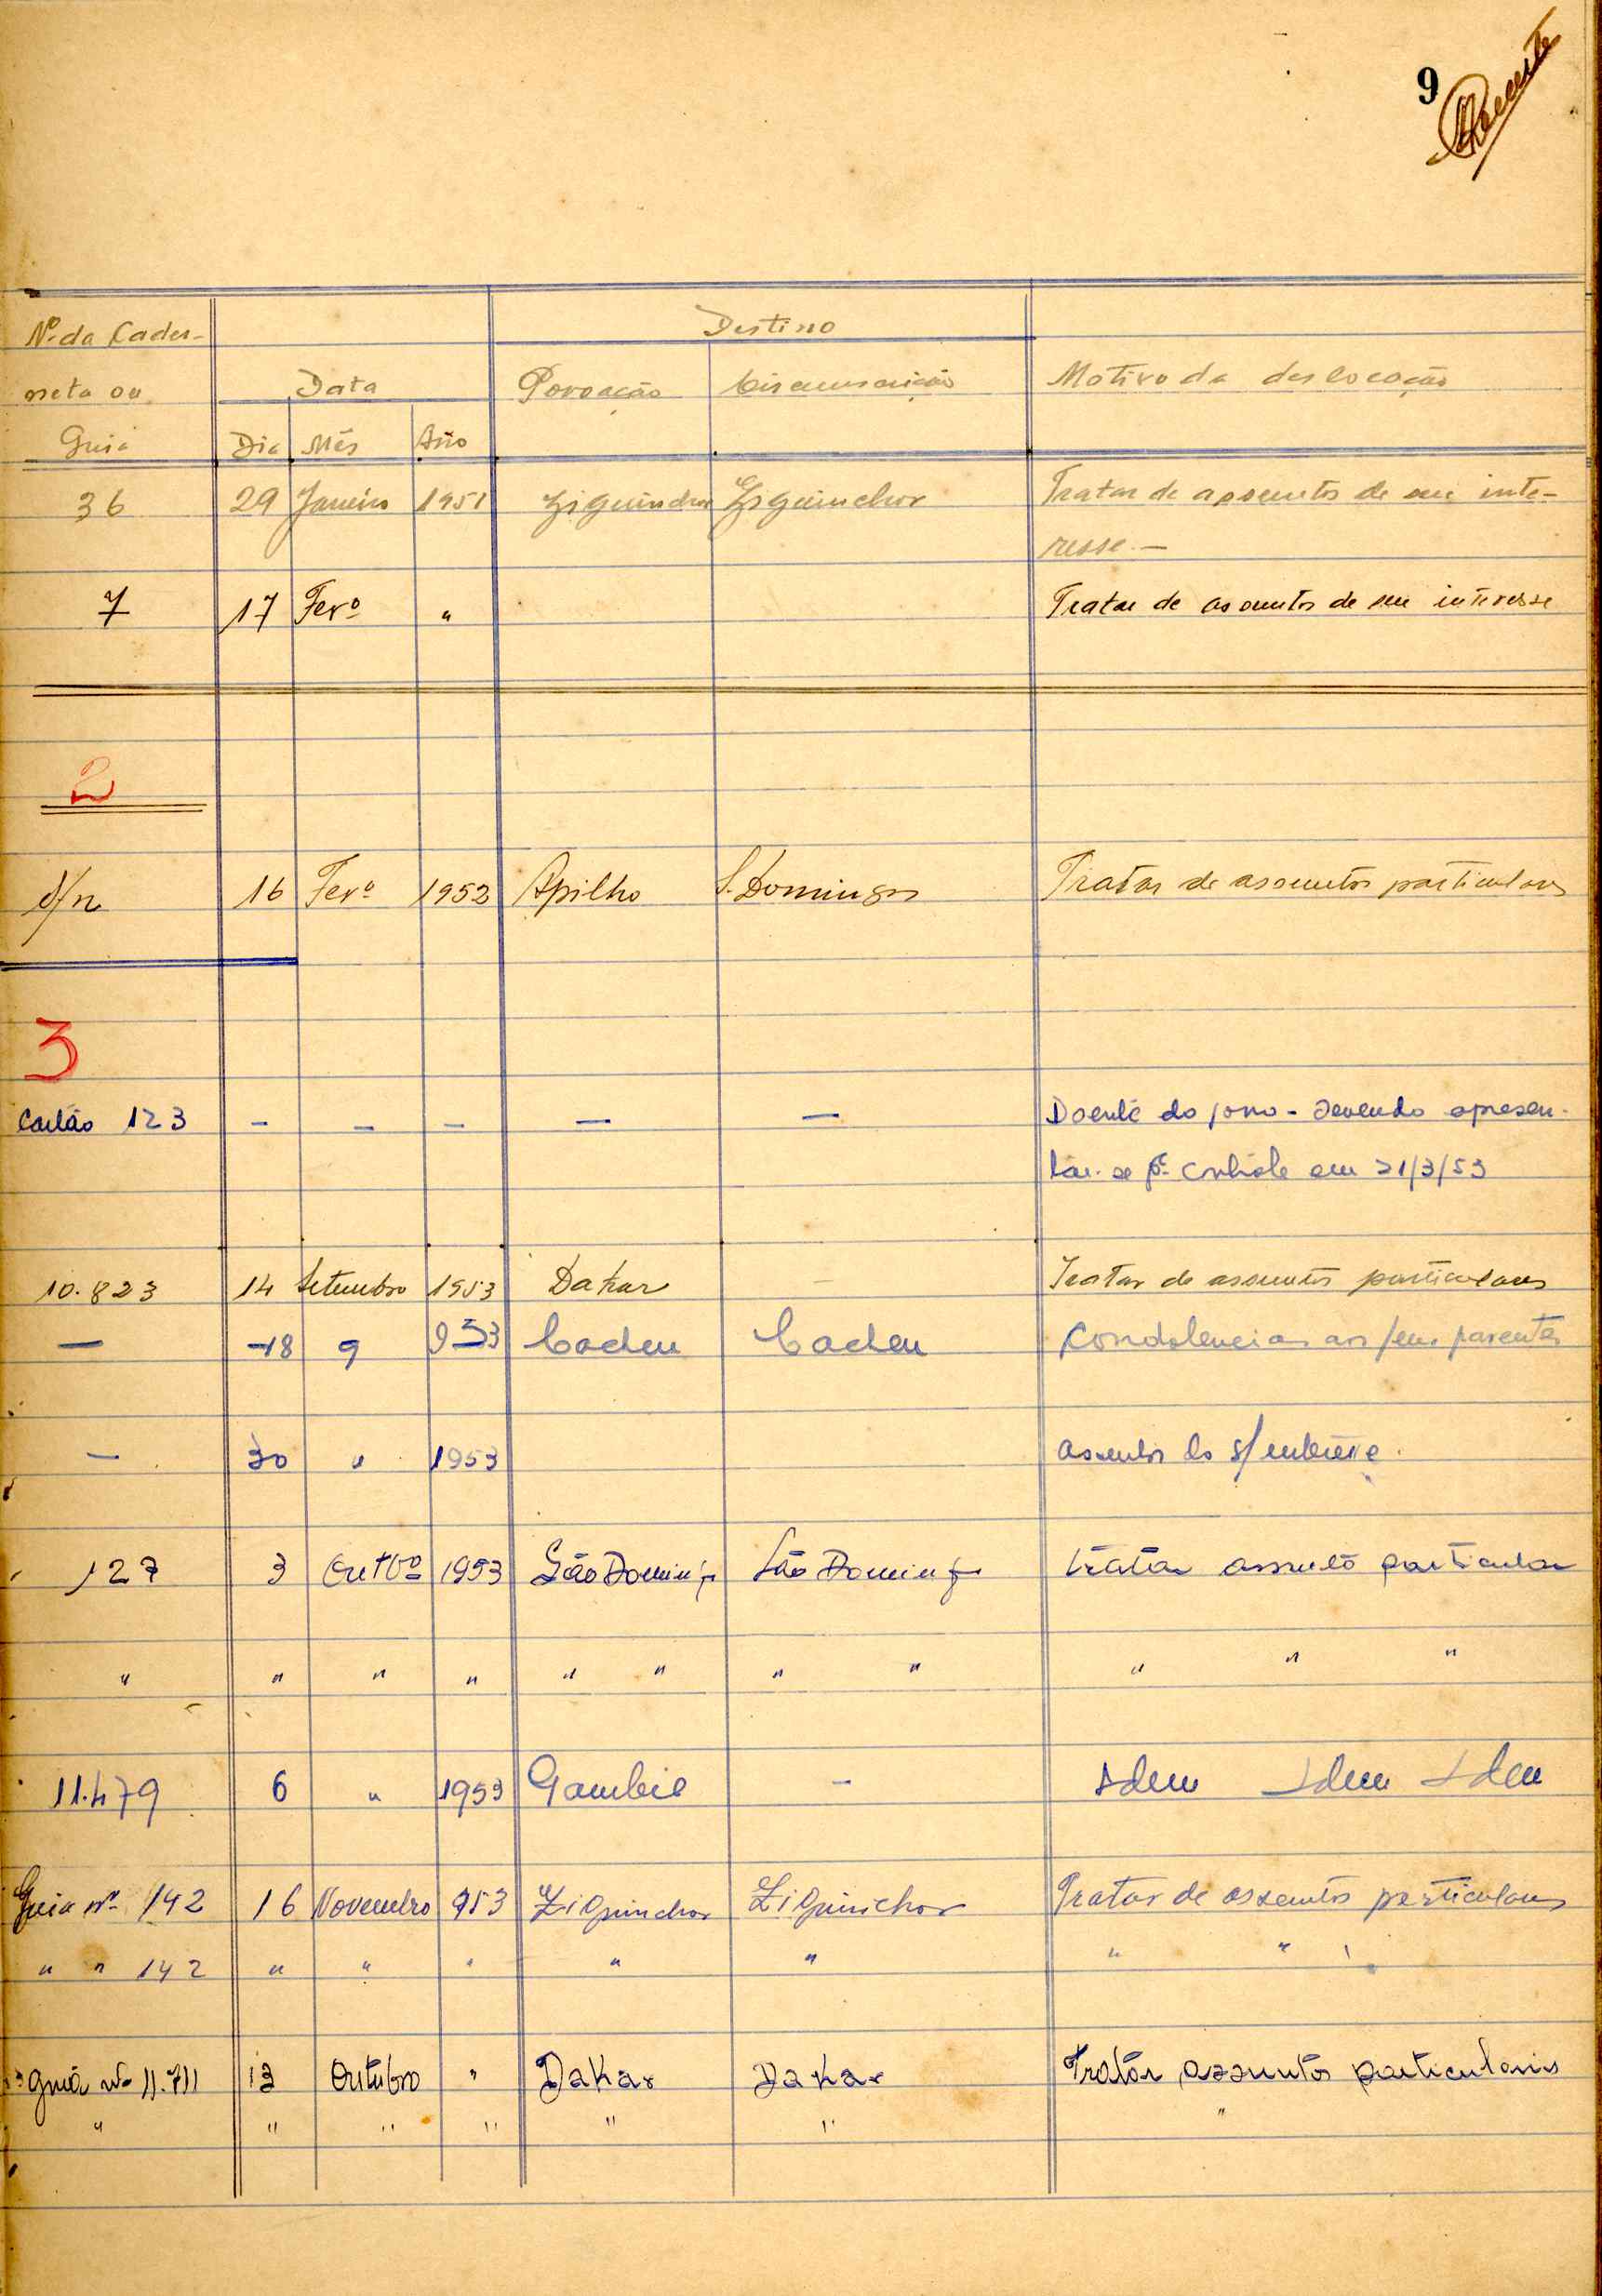 9
Nº da Cader-
Destino
neta ou
Data
Povoação Circunscrição Motivo da deslocação
Guia Dia Mês Ano
36 29 Janeiro 1951 Ziguinchor Ziguinchor Tratar de assuntos de seu inte-
resse.—
7 17 Fevº " Tratar de assuntos de seu interesse
2
s/n 16 Fevº 1952 Apilho S. Domingos Tratar de assuntos particulares
3
Cartão 123 - - - — — Doente do sono - devendo apresen-
tar-se pª controle em 21/3/53
10.823 14 Setembro 1953 Dakar - Tratar de assuntos particulares
— 18 9 953 Cacheu Cacheu Condolencias aos seus parentes
— 30 " 1953 assuntos do s/ interesse.
127 3 Outbº 1953 São Domingos São Domingos tratar assunto particular
" " " " " " " " " " "
11.479 6 " 1953 Gambia - Idem Idem Idem
Guia nº 142 16 Novembro 953 Ziguinchor Ziguinchor Tratar de assuntos particulares
" " 142 " " " " " " "
guia nº 11.711 13 Outubro " Dakar Dakar Tratar assuntos particulares
" " " " " " "